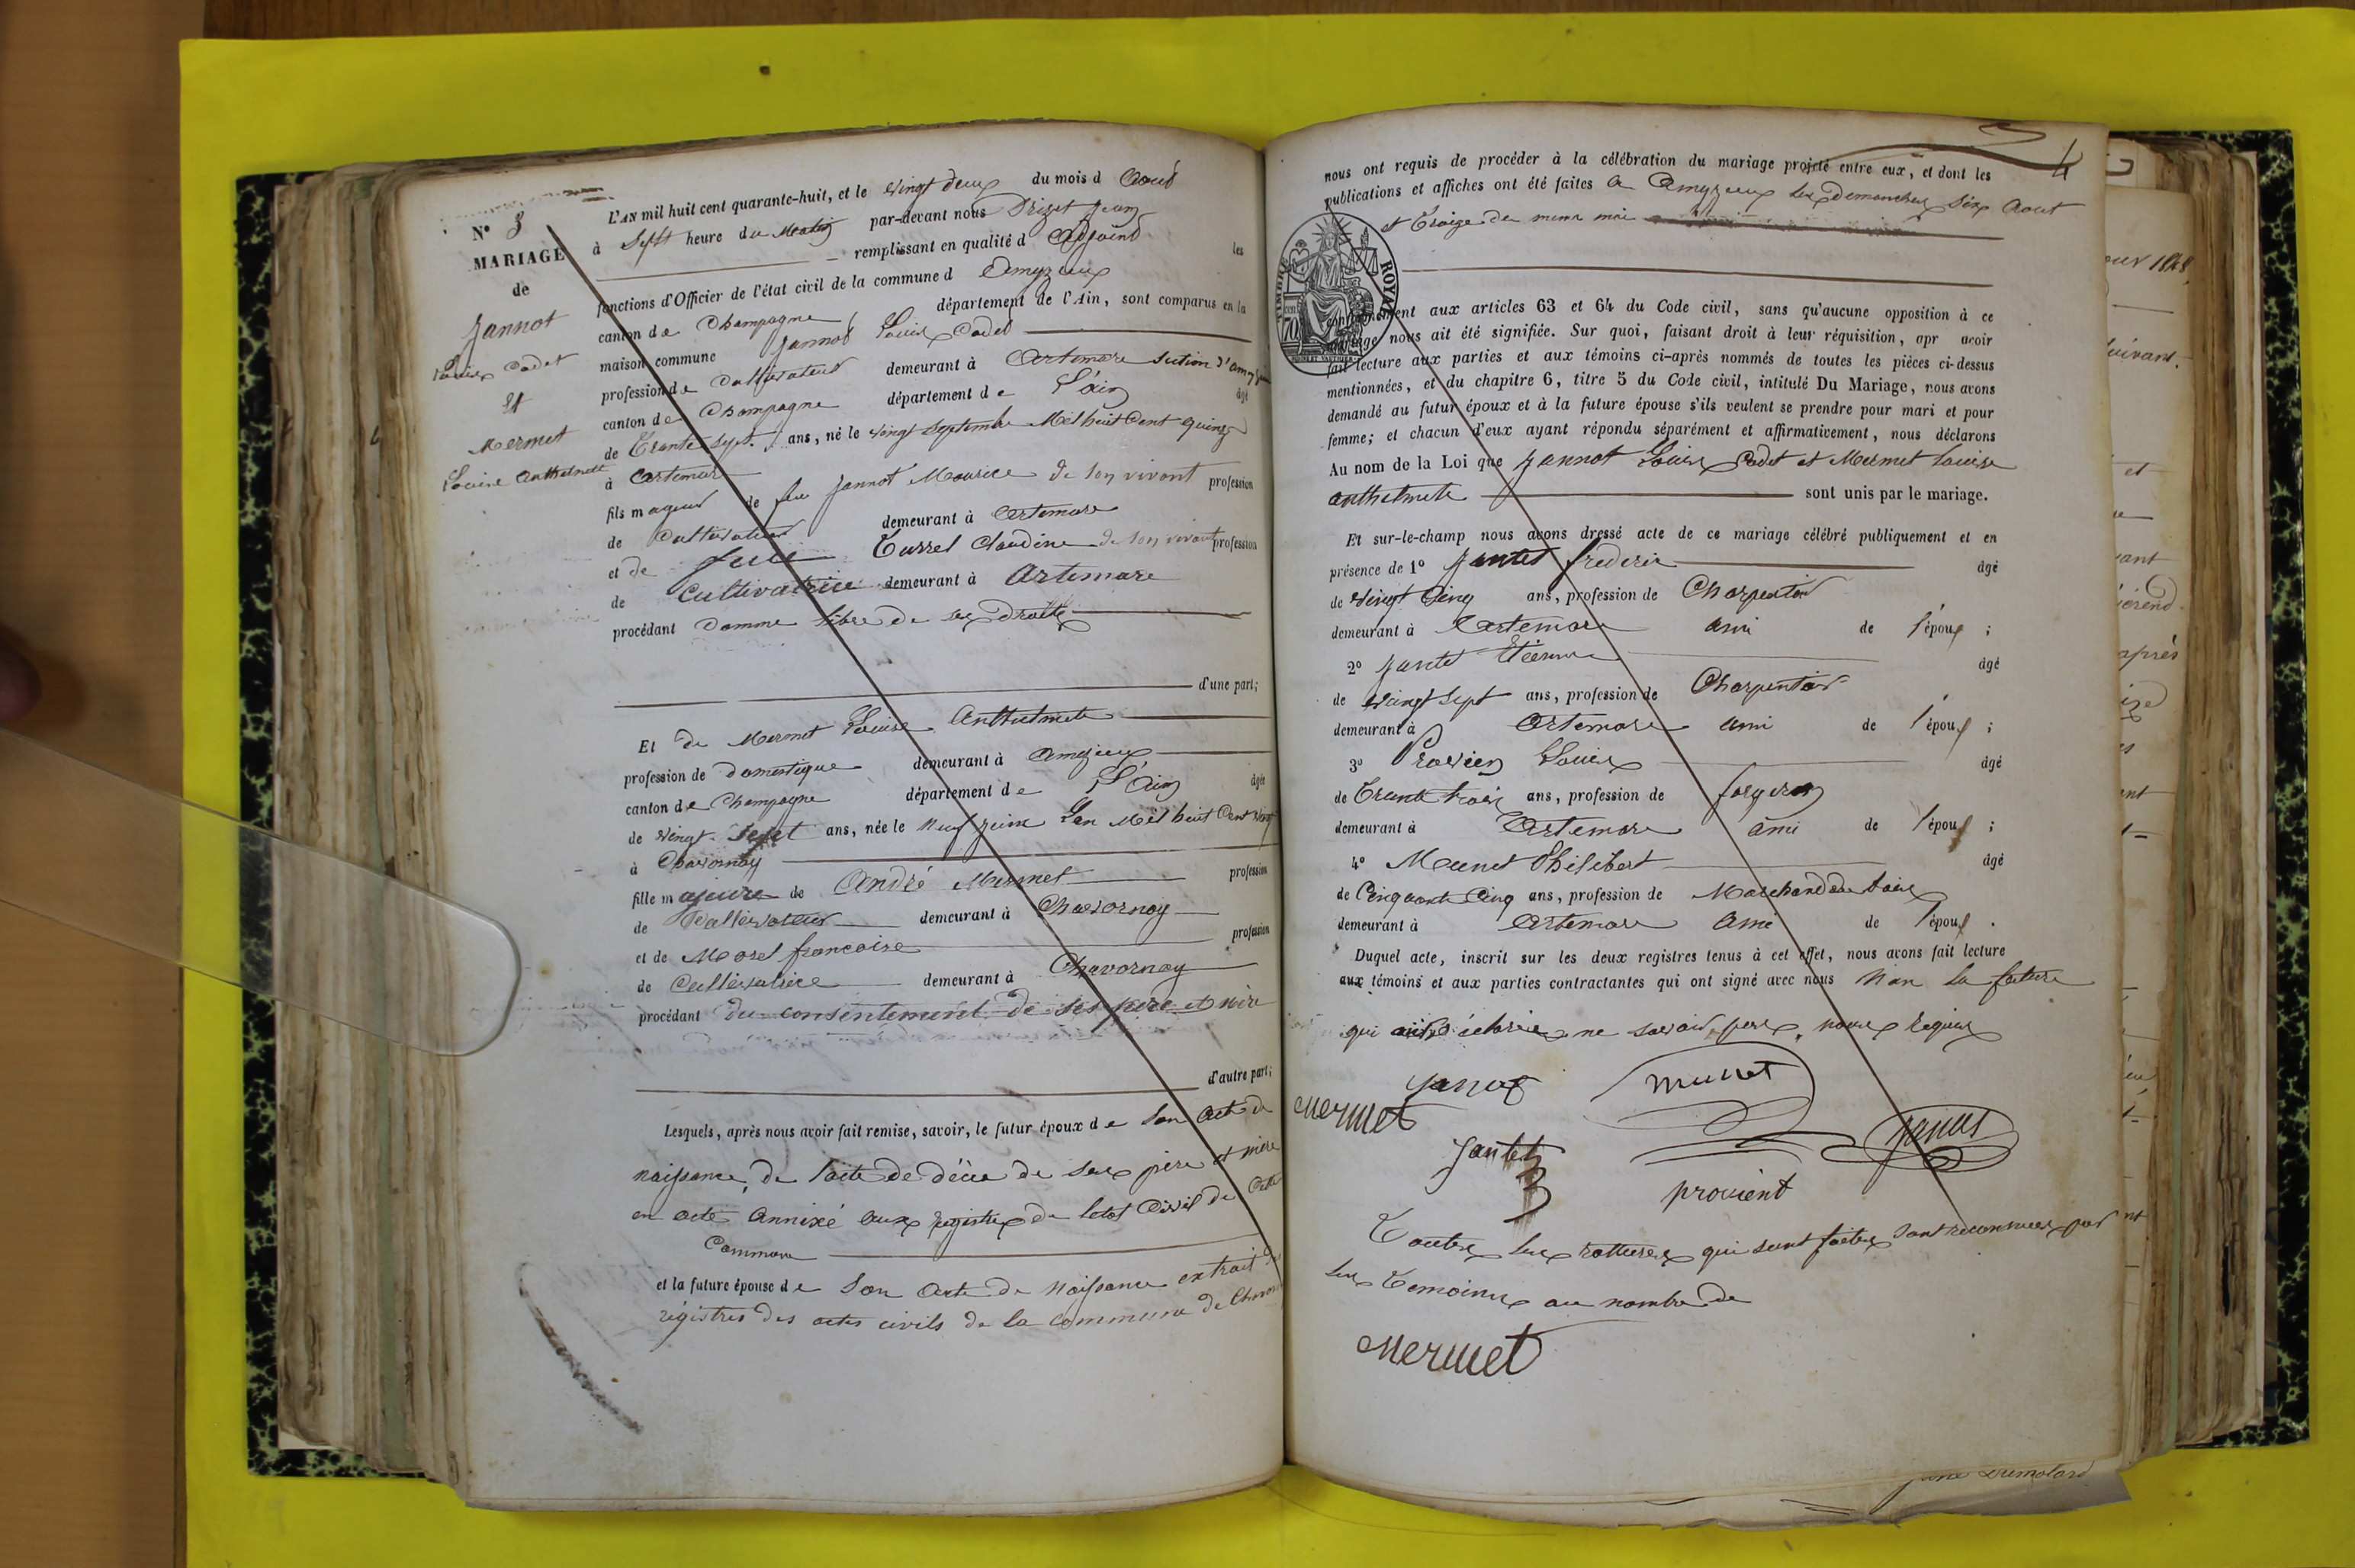 N° 3
MARIAGE
de
Jannot
Louis Cadet
et
Mermet
Louise Anthelmette
L'AN mil huit cent quarante-huit, et le vingt deux du mois d Aout
à Sept heure du Matin par-devant nous Drizet Jean
remplissant en qualité d Adjoint les
fonctions d'Officier de l'état civil de la commune d Amyzieux
canton de Champagne, département de l'Ain, sont comparus en la
maison commune Jannot Louis Cadet
profession de Cultivateur demeurant à Artemare section d'amyzieu
canton de Champagne département de L'ain âgé
de Trante Sept ans, né le vingt Septembre Mil huit Cent quinze
à Artemare
fils mageur de feu Jannot Maurice de son vivant profession
de Cultivateur demeurant à Artemare
et de feue Turrel Claudine de son vivant profession
de Cultivatrice demeurant à Artemare
procédant Comme libre de ses Droits
d'une part;
Et de Mermet Louise Anthelmete
profession de domestique demeurant à Amezieux
canton de Champagne département de L'Ain âgée
de vingt Sept ans, née le neuf juin L'an Mil huit Cent vingt
à Chavornay
fille majeure de André Mermet profession
de Cultivateur demeurant à Chavornay
et de Morel francoise profession
de Cultivatrice demeurant à Chavornay
procédant du consentement de ses père et mère
d'autre part;
Lesquels, après nous avoir fait remise, savoir, le futur époux de Son Acte de
naissance, de l'acte de décès de ses père et mère
en acte Annixé aux registres de letat Civil de Cette
Commune
et la future épouse de Son Acte de Naissance extrait des
régistres des actes civils de la commune de
4
nous ont requis de procéder à la célébration du mariage projeté entre eux, et dont les
publications et affiches ont été faites a Amyzieux les Dimanches six Aout
et Treize du meme mois
TIMBRE ROYAL
70
conformément aux articles 63 et 64 du Code civil, sans qu'aucune opposition à ce
mariage nous ait été signifiée. Sur quoi, faisant droit à leur réquisition, apr avoir
fait lecture aux parties et aux témoins ci-après nommés de toutes les pièces ci-dessus
mentionnées, et du chapitre 6, titre 5 du Code civil, intitulé Du Mariage, nous avons
demandé au futur époux et à la future épouse s'ils veulent se prendre pour mari et pour
femme; et chacun d'eux ayant répondu séparément et affirmativement, nous déclarons
Au nom de la Loi que Jannot Louis Cadet et Mermet Louise
anthelmete sont unis par le mariage.
Et sur-le-champ nous avons dressé acte de ce mariage célébré publiquement et en
présence de 1° Jantet frederic âgé
de Vingt Cinq ans, profession de Charpentier
demeurant à Artemare ami de l'époux ;
2° Jantet Etienne âgé
de vingt Sept ans, profession de Charpentier
demeurant à Artemare ami de l'époux ;
3° Provien Louis âgé
de Trante trois ans, profession de forgeron
demeurant à Artemare ami de l'époux ;
4° Meunet Philibert âgé
de Cinquante Cinq ans, profession de Marchand de bois
demeurant à Artemare Ami de l'époux .
Duquel acte, inscrit sur les deux registres tenus à cet effet, nous avons fait lecture
aux témoins et aux parties contractantes qui ont signé avec nous Non la future
qui ne savoir
Mermet
Jantet
provient
Toutes les rattures qui sont faites sont reconnues par
les Temoins au nombre de
Mermet